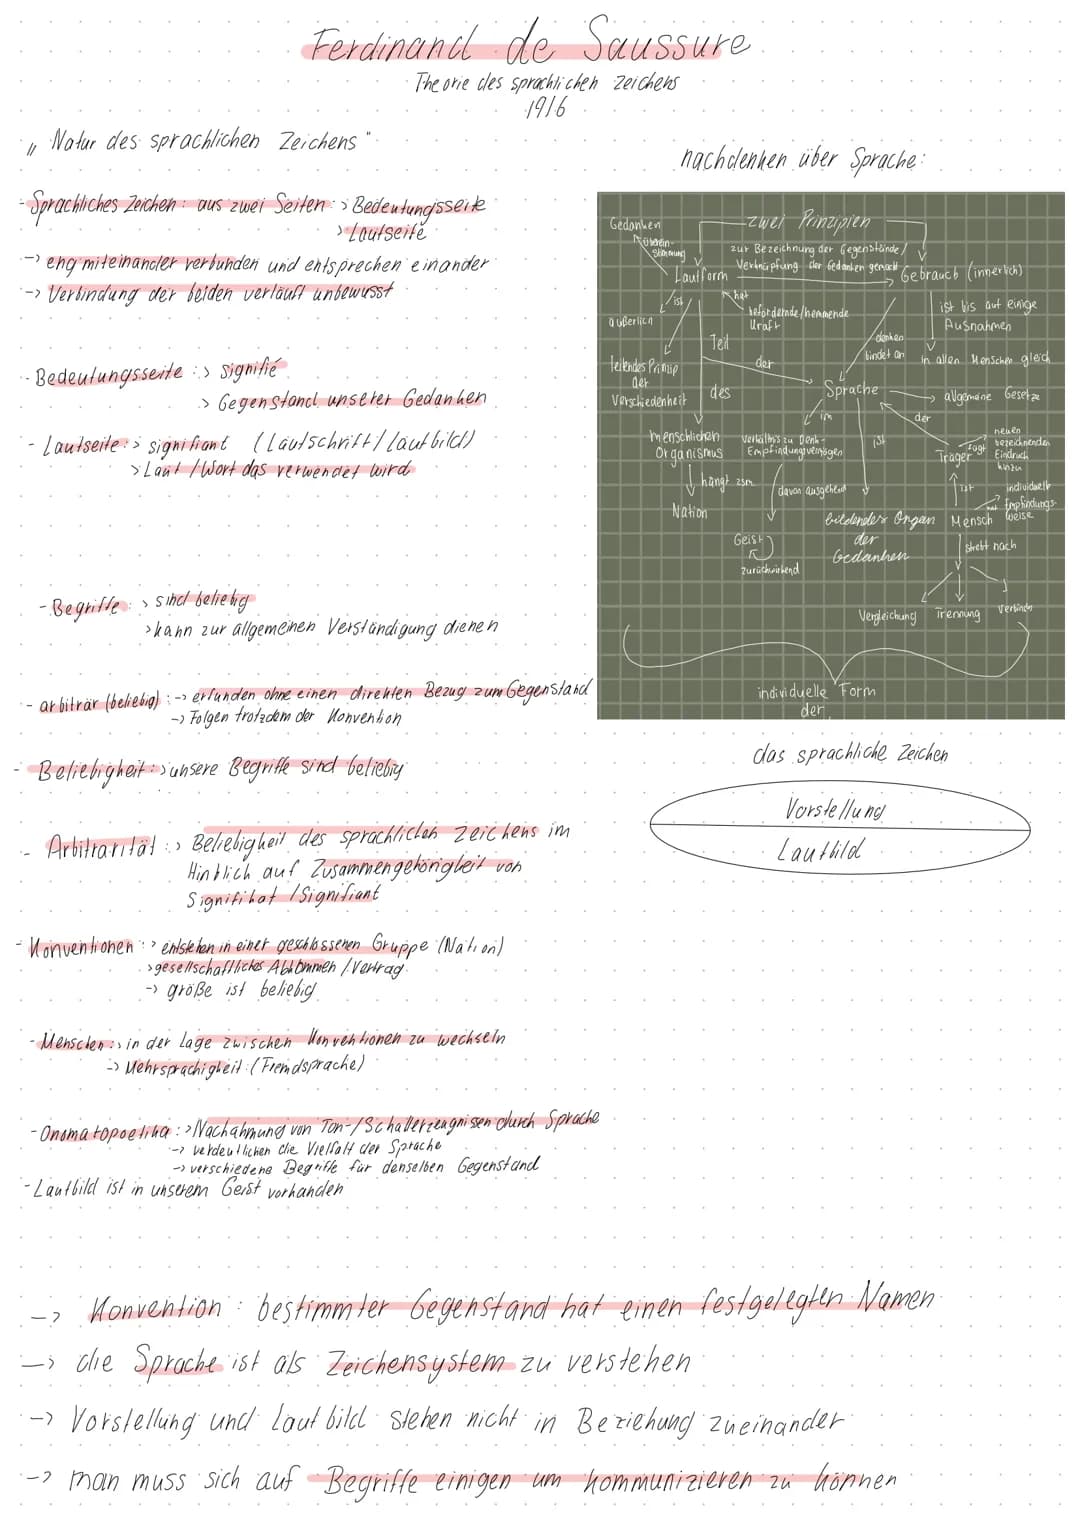 Ferdinand de Saussure
Theorie des sprachlichen Zeichens
1916
„ Natur des sprachlichen Zeichens "
- Sprachliches Zeichen: aus zwei Seiten :> Bedeutungsseite
> Lautseite
-> eng miteinander verbunden und entsprechen einander
-> Verbindung der beiden verläuft unbewusst
- Bedeutungsseite :> signifié
> Gegenstand unserer Gedanken
- Lautseite :> signifiant (Lautschrift / Lautbild)
> Laut / Wort das verwendet wird
- Begriffe : > sind beliebig
> kann zur allgemeinen Verständigung dienen
- arbiträr (beliebig) : -> erfunden ohne einen direkten Bezug zum Gegenstand
-> Folgen trotzdem der Konvention
- Beliebigkeit :> unsere Begriffe sind beliebig
- Arbitrarität :> Beliebigkeit des sprachlichen Zeichens im
Hinblich auf Zusammengehörigkeit von
Signifikat / Signifiant
- Konventionen : > entstehen in einer geschlossenen Gruppe (Nation)
> gesellschaftliches Abkommen / Vertrag
-> größe ist beliebig
- Menschen :> in der Lage zwischen Konventionen zu wechseln
-> Mehrsprachigkeit (Fremdsprache)
- Onomatopoetika :> Nachahmung von Ton-/Schallerzeugnissen durch Sprache
-> verdeutlichen die Vielfalt der Sprache
-> verschiedene Begriffe für denselben Gegenstand
- Lautbild ist in unserem Geist vorhanden
-> Konvention : bestimmter Gegenstand hat einen festgelegten Namen
-> die Sprache ist als Zeichensystem zu verstehen
-> Vorstellung und Lautbild stehen nicht in Beziehung zueinander
-> man muss sich auf Begriffe einigen um kommunizieren zu können
nachdenken über Sprache:
zwei Prinzipien
Gedanken
überein-
stimmung
zur Bezeichnung der Gegenstände /
Verknüpfung der Gedanken gemacht
Lautform
Gebrauch (innerlich)
ist
hat
befördernde/hemmende
Kraft
äußerlich
ist bis auf einige
Ausnahmen
in allen Menschen gleich
Teil
der
des
denken
bindet an
leitendes Prinzip
der
Verschiedenheit
Sprache
allgemeine Gesetze
im
ist
der
menschlichen
Organismus
Verhältnis zu Denk-
Empfindungsvermögen
Träger
fügt
neuen
bezeichnenden
Eindruck
hinzu
hängt zsm.
davon ausgehend
ist
hat
individuelle
Empfindungs-
weise
Nation
bildendes Organ
der
Gedanken
Mensch
Geist
zurückwirkend
strebt nach
Vergleichung
Trennung
Verbindung
individuelle Form
der
das sprachliche Zeichen
Vorstellung
Lautbild